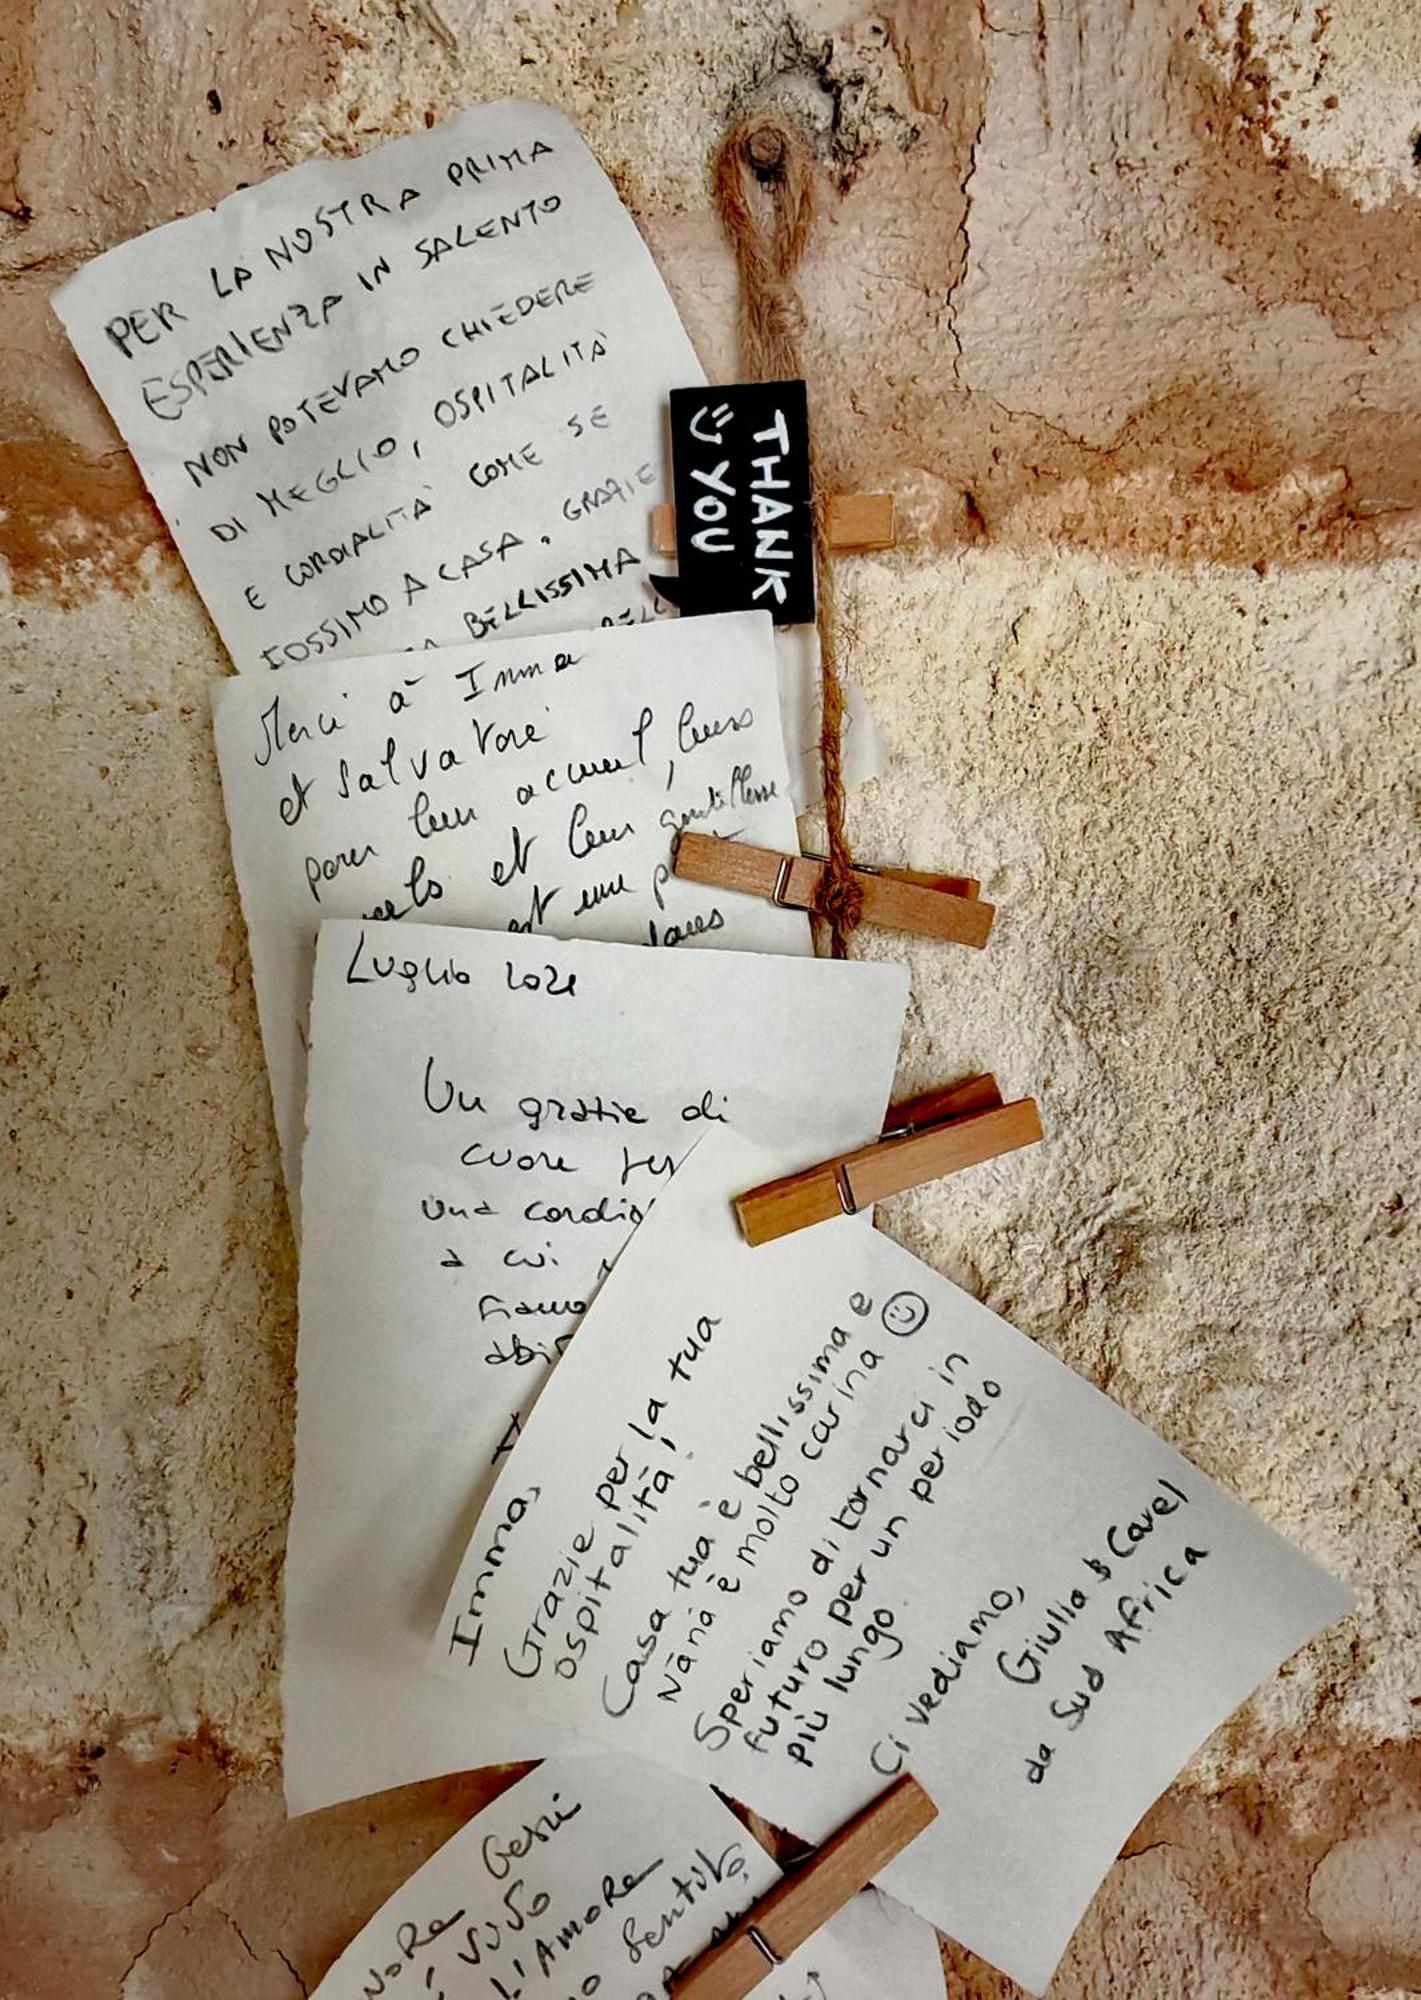 PER LA NOSTRA PRIMA
ESPERIENZA IN SALENTO
NON POTEVAMO CHIEDERE
DI MEGLIO, OSPITALITÀ
E CORDIALITÀ COME SE
FOSSIMO A CASA. GRAZIE
BELLISSIMA
THANK
YOU
Merci à Imma
et Salvatore
pour leur accueil, leurs
et leur gentillesse
est une
dans
Luglio 2021
Un grazie di
cuore per
una
a cui
siamo
Imma,
Grazie per la tua
ospitalità!
Casa tua è bellissima e
Nanà è molto carina ☺
Speriamo di tornarci in
futuro per un periodo
più lungo.
Ci vediamo,
Giulia & Cavel
da Sud Africa
Gesù
L'AMORE
sentito